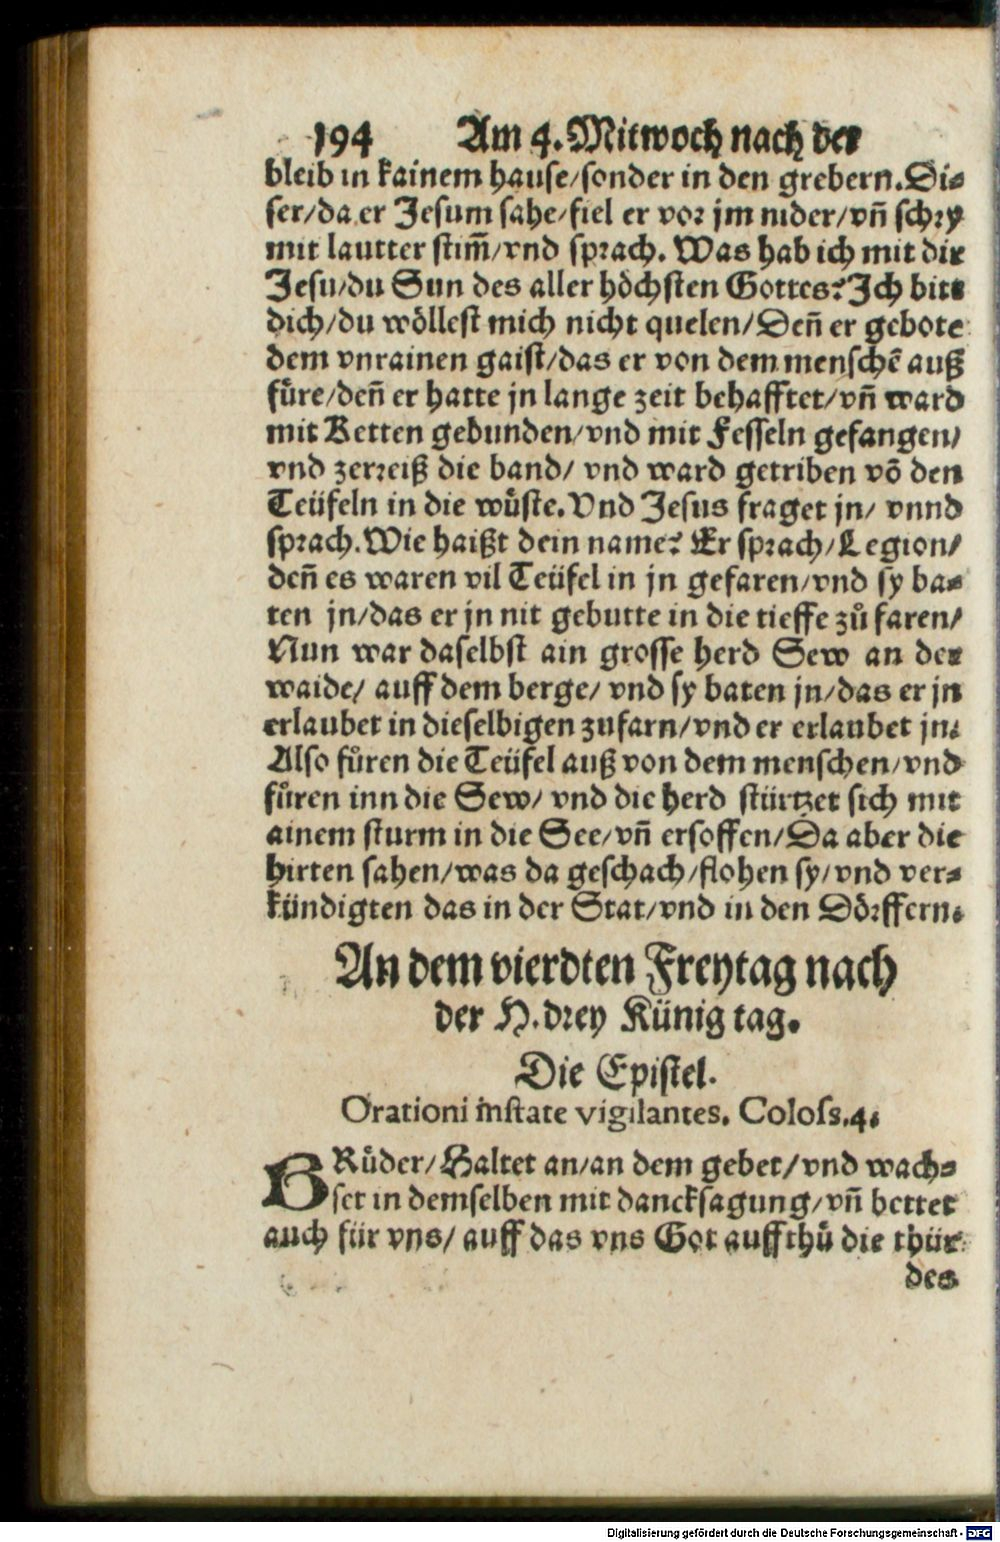 194 Am 4. Mitwoch nach der
bleib in kainem hause/sonder in den grebern. Di⸗
ser/da er Jesum sahe/fiel er vor jm nider/vñ schry
mit lautter stim̃/vnd sprach. Was hab ich mit dir
Jesu/du Sun des aller höchsten Gottes? Ich bitt
dich/du wöllest mich nicht quelen/Deñ er gebote
dem vnrainen gaist/das er von dem menschẽ auß
fůre/deñ er hatte jn lange zeit behafftet/vñ ward
mit Ketten gebunden/vnd mit Fesseln gefangen/
vnd zerreiß die band/ vnd ward getriben võ den
Teüfeln in die wůste. Vnd Jesus fraget jn/ vnnd
sprach. Wie haißt dein name? Er sprach/Legion/
deñ es waren vil Teüfel in jn gefaren/vnd sy ba⸗
ten jn/das er jn nit gebutte in die tieffe zů faren/
Nun war daselbst ain grosse herd Sew an der
waide/ auff dem berge/ vnd sy baten jn/das er jn
erlaubet in dieselbigen zufarn/vnd er erlaubet jn.
Also fůren die Teüfel auß von dem menschen/vnd
fůren inn die Sew/ vnd die herd stürtzet sich mit
ainem sturm in die See/vñ ersoffen/Da aber die
hirten sahen/was da geschach/flohen sy/vnd ver⸗
kündigten das in der Stat/vnd in den Dörffern.
An dem vierdten Freytag nach
der H. drey Künig tag.
Die Epistel.
Orationi instate vigilantes. Coloſs. 4.
BRůder/Haltet an/an dem gebet/vnd wach⸗
set in demselben mit dancksagung/vñ bettet
auch für vns/ auff das vns Got auffthů die thür
des
Digitalisierung gefördert durch die Deutsche Forschungsgemeinschaft - DFG